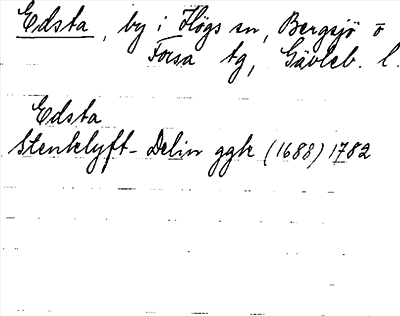 Edsta, by i Högs sn, Bergsjö o
Forsa tg, Gävleb. l.
Edsta
Stenklyft-Delin ggk (1688) 1782